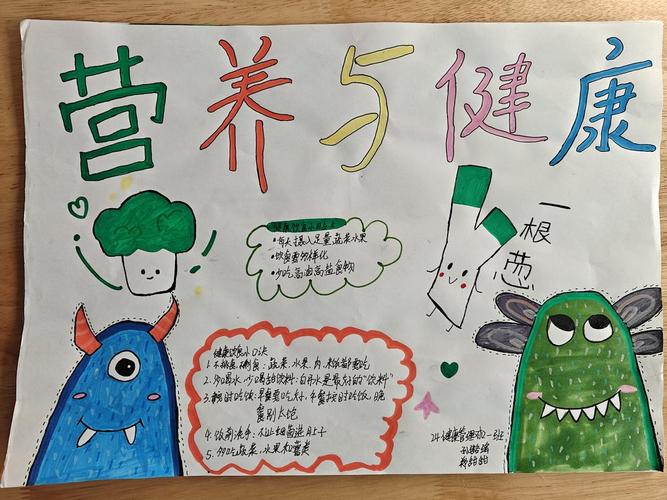 营养与健康
一根葱
健康饮食小贴士
•每天摄入足量蔬菜水果
•饮食要多样化
•少吃高油高盐食物
健康饮食小口诀
1.不挑食、偏食：蔬菜、水果、肉、粮都要吃
2.多喝水，少喝甜饮料：白开水是最好的“饮料”
3.按时吃饭：早餐要吃好，午餐按时吃饭，晚
餐别太饱
4.饭前洗手：不让细菌进肚子
5.多吃蔬菜、水果和薯类
24健康管理2一班